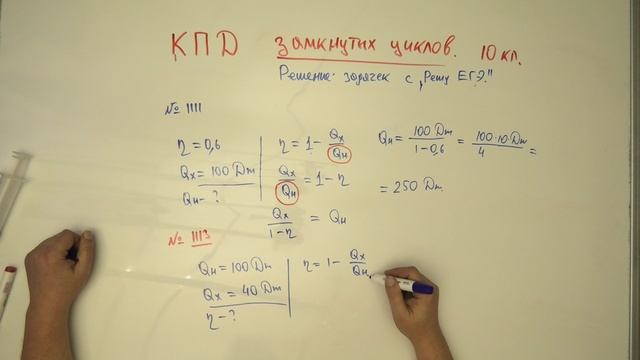 КПД замкнутых циклов. 10 кл.
Решение задачек с „Решу ЕГЭ"
№ 1111
η = 0,6
Qх = 100 Дж
Qн - ?
η = 1 - Qх/Qн
Qх/Qн = 1 - η
Qх/1-η = Qн
Qн = 100 Дж/1-0,6 = 100·10 Дж/4 =
= 250 Дж
№ 1113
Qн = 100 Дж
Qх = 40 Дж
η - ?
η = 1 - Qх/Qн